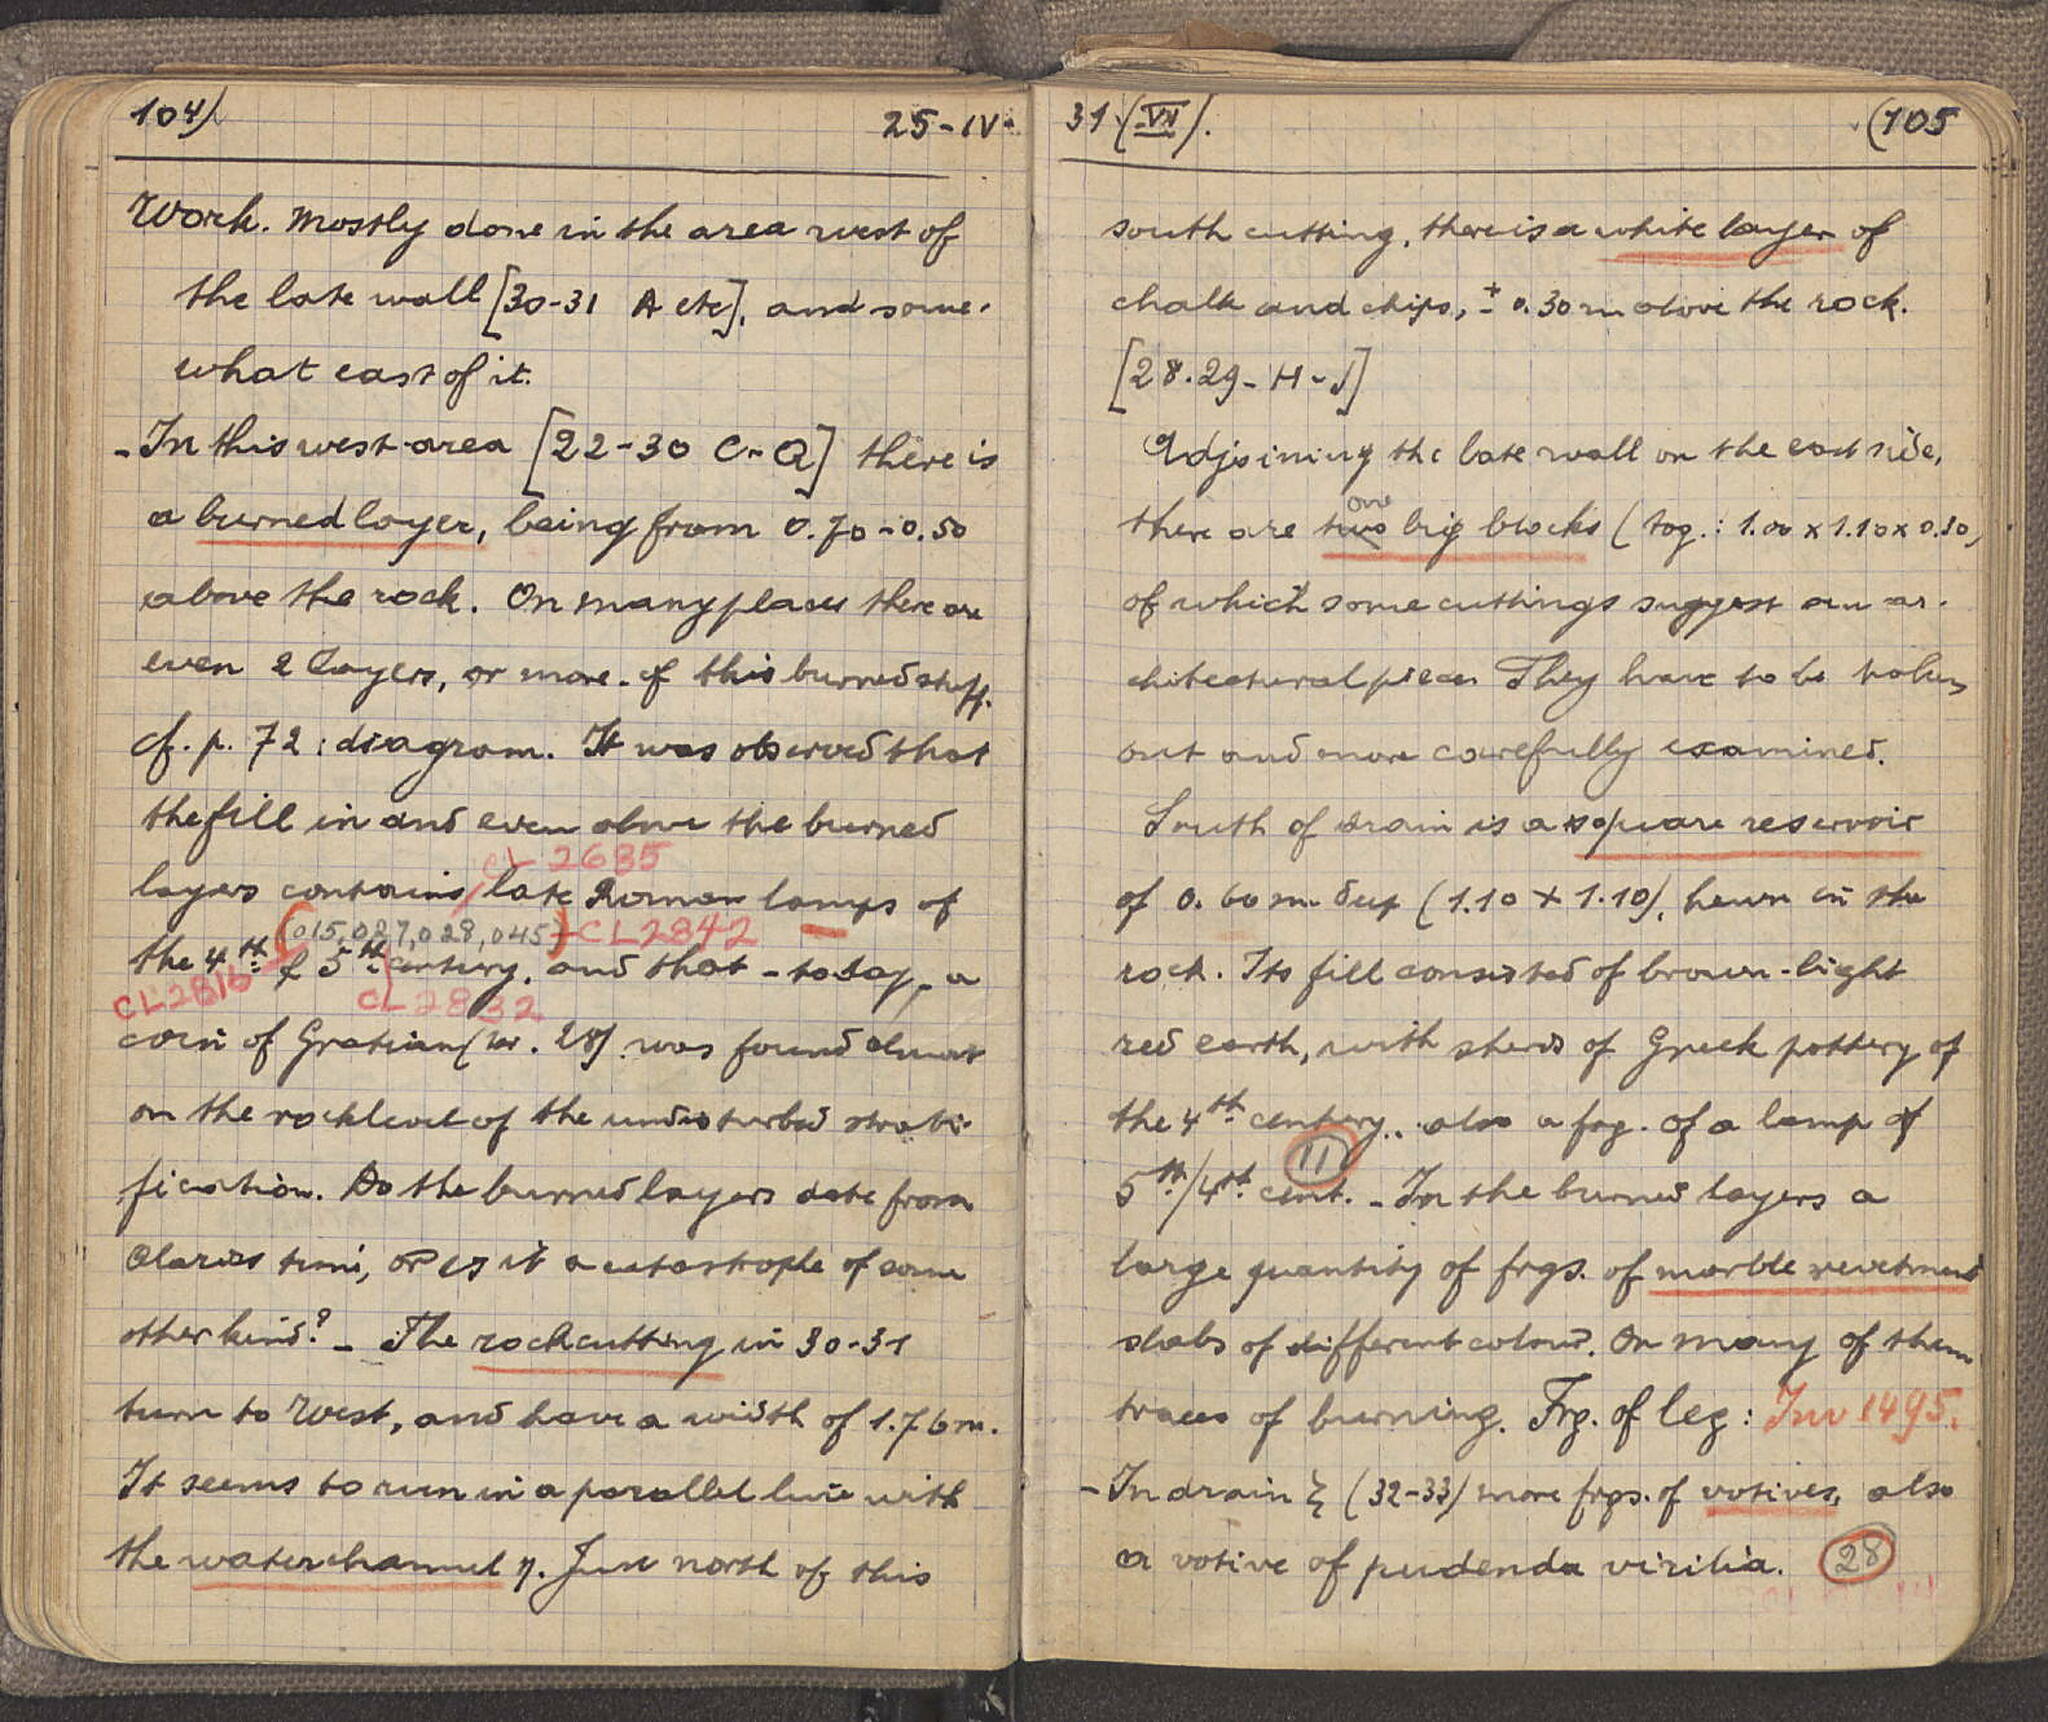 104)
25-IV-
Work. Mostly done in the area west of
the late wall [30-31 A etc], and some-
what east of it.
- In this west-area [22-30 C-Q] there is
a burned layer, being from 0.70-0.50
above the rock. On many places there are
even 2 layers, or more of this burned stuff.
cf. p. 72: diagram. It was observed that
the fill in and even above the burned
CL 2635
layers contains late Roman lamps of
(015, 027, 028, 045) CL 2842
the 4th & 5th century, and that - today - a
CL 2816 CL 2832
coin of Gratian (nr. 28) was found almost
on the rocklevel of the undisturbed strati-
fication. Do the burned layers date from
Alarics time, or is it a catastrophe of some
other kind? - The rockcutting in 30-31
turn to West, and have a width of 1.76 m.
It seems to run in a parallel line with
the waterchannel η. Just north of this
31 (VI).
(105
south cutting, there is a white layer of
chalk and chips, ± 0.30 m above the rock.
[28.29-H-J]
Adjoining the late wall on the east side,
one
there are two big blocks (tog.: 1.00 x 1.10 x 0.30,
of which some cuttings suggest an ar-
chitectural piece. They have to be taken
out and more carefully examined.
South of drain is a square reservoir
of 0.60 m. deep (1.10 + 1.10), hewn in the
rock. Its fill consisted of brown-light
red earth, with sherds of Greek pottery of
the 4th century.. also a frg. of a lamp of
11
5th/4th cent. - In the burned layers a
large quantity of frgs. of marble revetment
slabs of different colour. On many of them
traces of burning. Frg. of leg: Inv 1495.
- In drain ξ (32-33) more frgs. of votives, also
a votive of pudenda virilia. 28